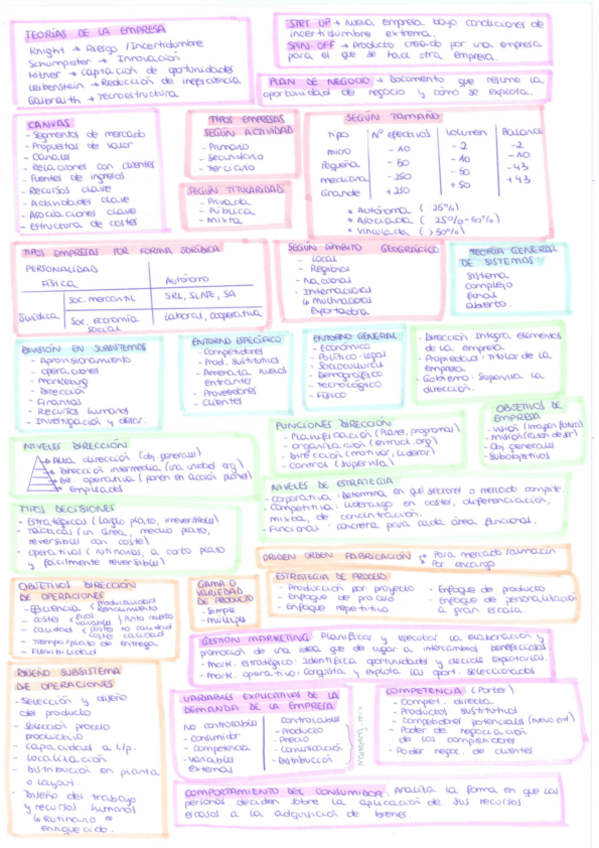 TEORÍAS DE LA EMPRESA
Knight → Riesgo / Incertidumbre
Schumpeter → Innovación
Kirner → captación de oportunidades
Leibenstein → Reducción de ineficiencia
Galbraith → Tecnoestructura
START UP → nueva empresa bajo condiciones de
incertidumbre extrema.
SPIN OFF → Producto creado por una empresa
para el que se hace otra empresa.
PLAN DE NEGOCIO → Documento que resume la
oportunidad de negocio y cómo se explota.
CANVAS
- Segmentos de mercado
- Propuestas de valor
- Canales
- Relaciones con clientes
- Fuentes de ingresos
- Recursos clave
- Actividades clave
- Asociaciones clave
- Estructura de costes
TIPOS EMPRESAS
SEGÚN ACTIVIDAD
- Primario
- Secundario
- Terciario
SEGÚN TITULARIDAD
- Privada
- Pública
- Mixta
SEGÚN TAMAÑO
Tipo Nº efectivos Volumen Balance
micro -10 -2 -2
Pequeña -50 -10 -10
mediana -250 -50 -43
Grande +250 +50 +43
* Autónoma (25%)
* Asociada (25%-50%)
* Vinculada (>50%)
TIPOS EMPRESAS POR FORMA JURÍDICA
PERSONALIDAD
Física Autónomo
Jurídica Soc. mercantil SRL, SLNE, SA
Soc. economía social Laboral, cooperativa
SEGÚN ÁMBITO GEOGRÁFICO
- Local
- Regional
- Nacional
- Internacional
↳ Multinacional
Exportadora
TEORÍA GENERAL
DE SISTEMAS:
Sistema
Complejo
Final
abierto.
DIVISIÓN EN SUBSISTEMAS
- Aprovisionamiento
- operaciones
- Marketing
- Dirección
- Finanzas
- Recursos humanos
- Investigación y desar.
ENTORNO ESPECÍFICO
- Competidores
- Prod. sustitutivos
- Amenaza nuevos
entrantes
- Proveedores
- Clientes
ENTORNO GENERAL
- Económico
- Político-legal
- Sociocultural
- Demográfico
- Tecnológico
- Físico
- Dirección: Integra elementos
de la empresa
- Propiedad: titular de la
empresa
- Gobierno: Supervisa la
dirección.
NIVELES DIRECCIÓN
Alta dirección (obj. generales)
Dirección intermedia (una unidad org)
Dir. operativa (ponen en acción planes)
Empleados
FUNCIONES DIRECCIÓN
- Planificación (Planes, programas)
- organización (estruct. org)
- Dirección (motivar, liderar)
- control (supervisa)
OBJETIVOS DE
EMPRESA
- Visión (imagen futura)
- Misión (razón de ser)
- obj generales
- Subobjetivos
TIPOS DECISIONES
- Estratégicas (largo plazo, irreversibles)
- Tácticas (un área, medio plazo,
reversibles con coste)
- operativas (rutinarias, a corto plazo
y fácilmente reversibles)
NIVELES DE ESTRATEGIA
- Corporativa: Determina en qué sectores o mercado compite.
- Competitiva: Liderazgo en costes, diferenciación,
mixta, de concentración.
- Funcional: concreta para cada área funcional.
ORIGEN ORDEN FABRICACIÓN → Para mercado/almacén
Por encargo
OBJETIVOS DIRECCIÓN
DE OPERACIONES
- Eficiencia (Productividad Rendimiento
- Costes (Fijos variables) Punto muerto
- Calidad (costes no calidad costes calidad
- Tiempo/plazo de entrega
- Flexibilidad
GAMA O
VARIEDAD
DE PRODUCTO
- Simple
- Múltiple
ESTRATEGIA DE PROCESO
- Producción por proyecto
- Enfoque de proceso
- Enfoque repetitivo
- Enfoque de producto
- Enfoque de personalización
a gran escala.
GESTIÓN MARKETING Planificar y ejecutar la elaboración y
promoción de una idea que de lugar a intercambios beneficiosos.
- Mark. estratégico: Identifica oportunidades y decide explotarlas.
- Mark. operativo: Conquista y explota las oport. seleccionadas
DISEÑO SUBSISTEMA
DE OPERACIONES
- Selección y diseño
del producto
- Selección proceso
productivo
- Capacidad a L/p.
- Localización
- Distribución en planta
o layout.
- Diseño del trabajo
y recursos humanos
↳ Rutinario o
enriquecido.
VARIABLES EXPLICATIVAS DE LA
DEMANDA DE LA EMPRESA
No controlables
- Consumidor
- Competencia
- Variables
externas
Controlables
- Producto
- Precio
- Comunicación
- Distribución
Marketing-mix
COMPETENCIA (Porter)
- Compet. directa
- Productos sustitutivos
- Competidores potenciales (nuevo ent)
- Poder de negociación
de los competidores
- Poder negoc. de clientes
COMPORTAMIENTO DEL CONSUMIDOR: Analiza la forma en que las
personas deciden sobre la aplicación de sus recursos
escasos a la adquisición de bienes.